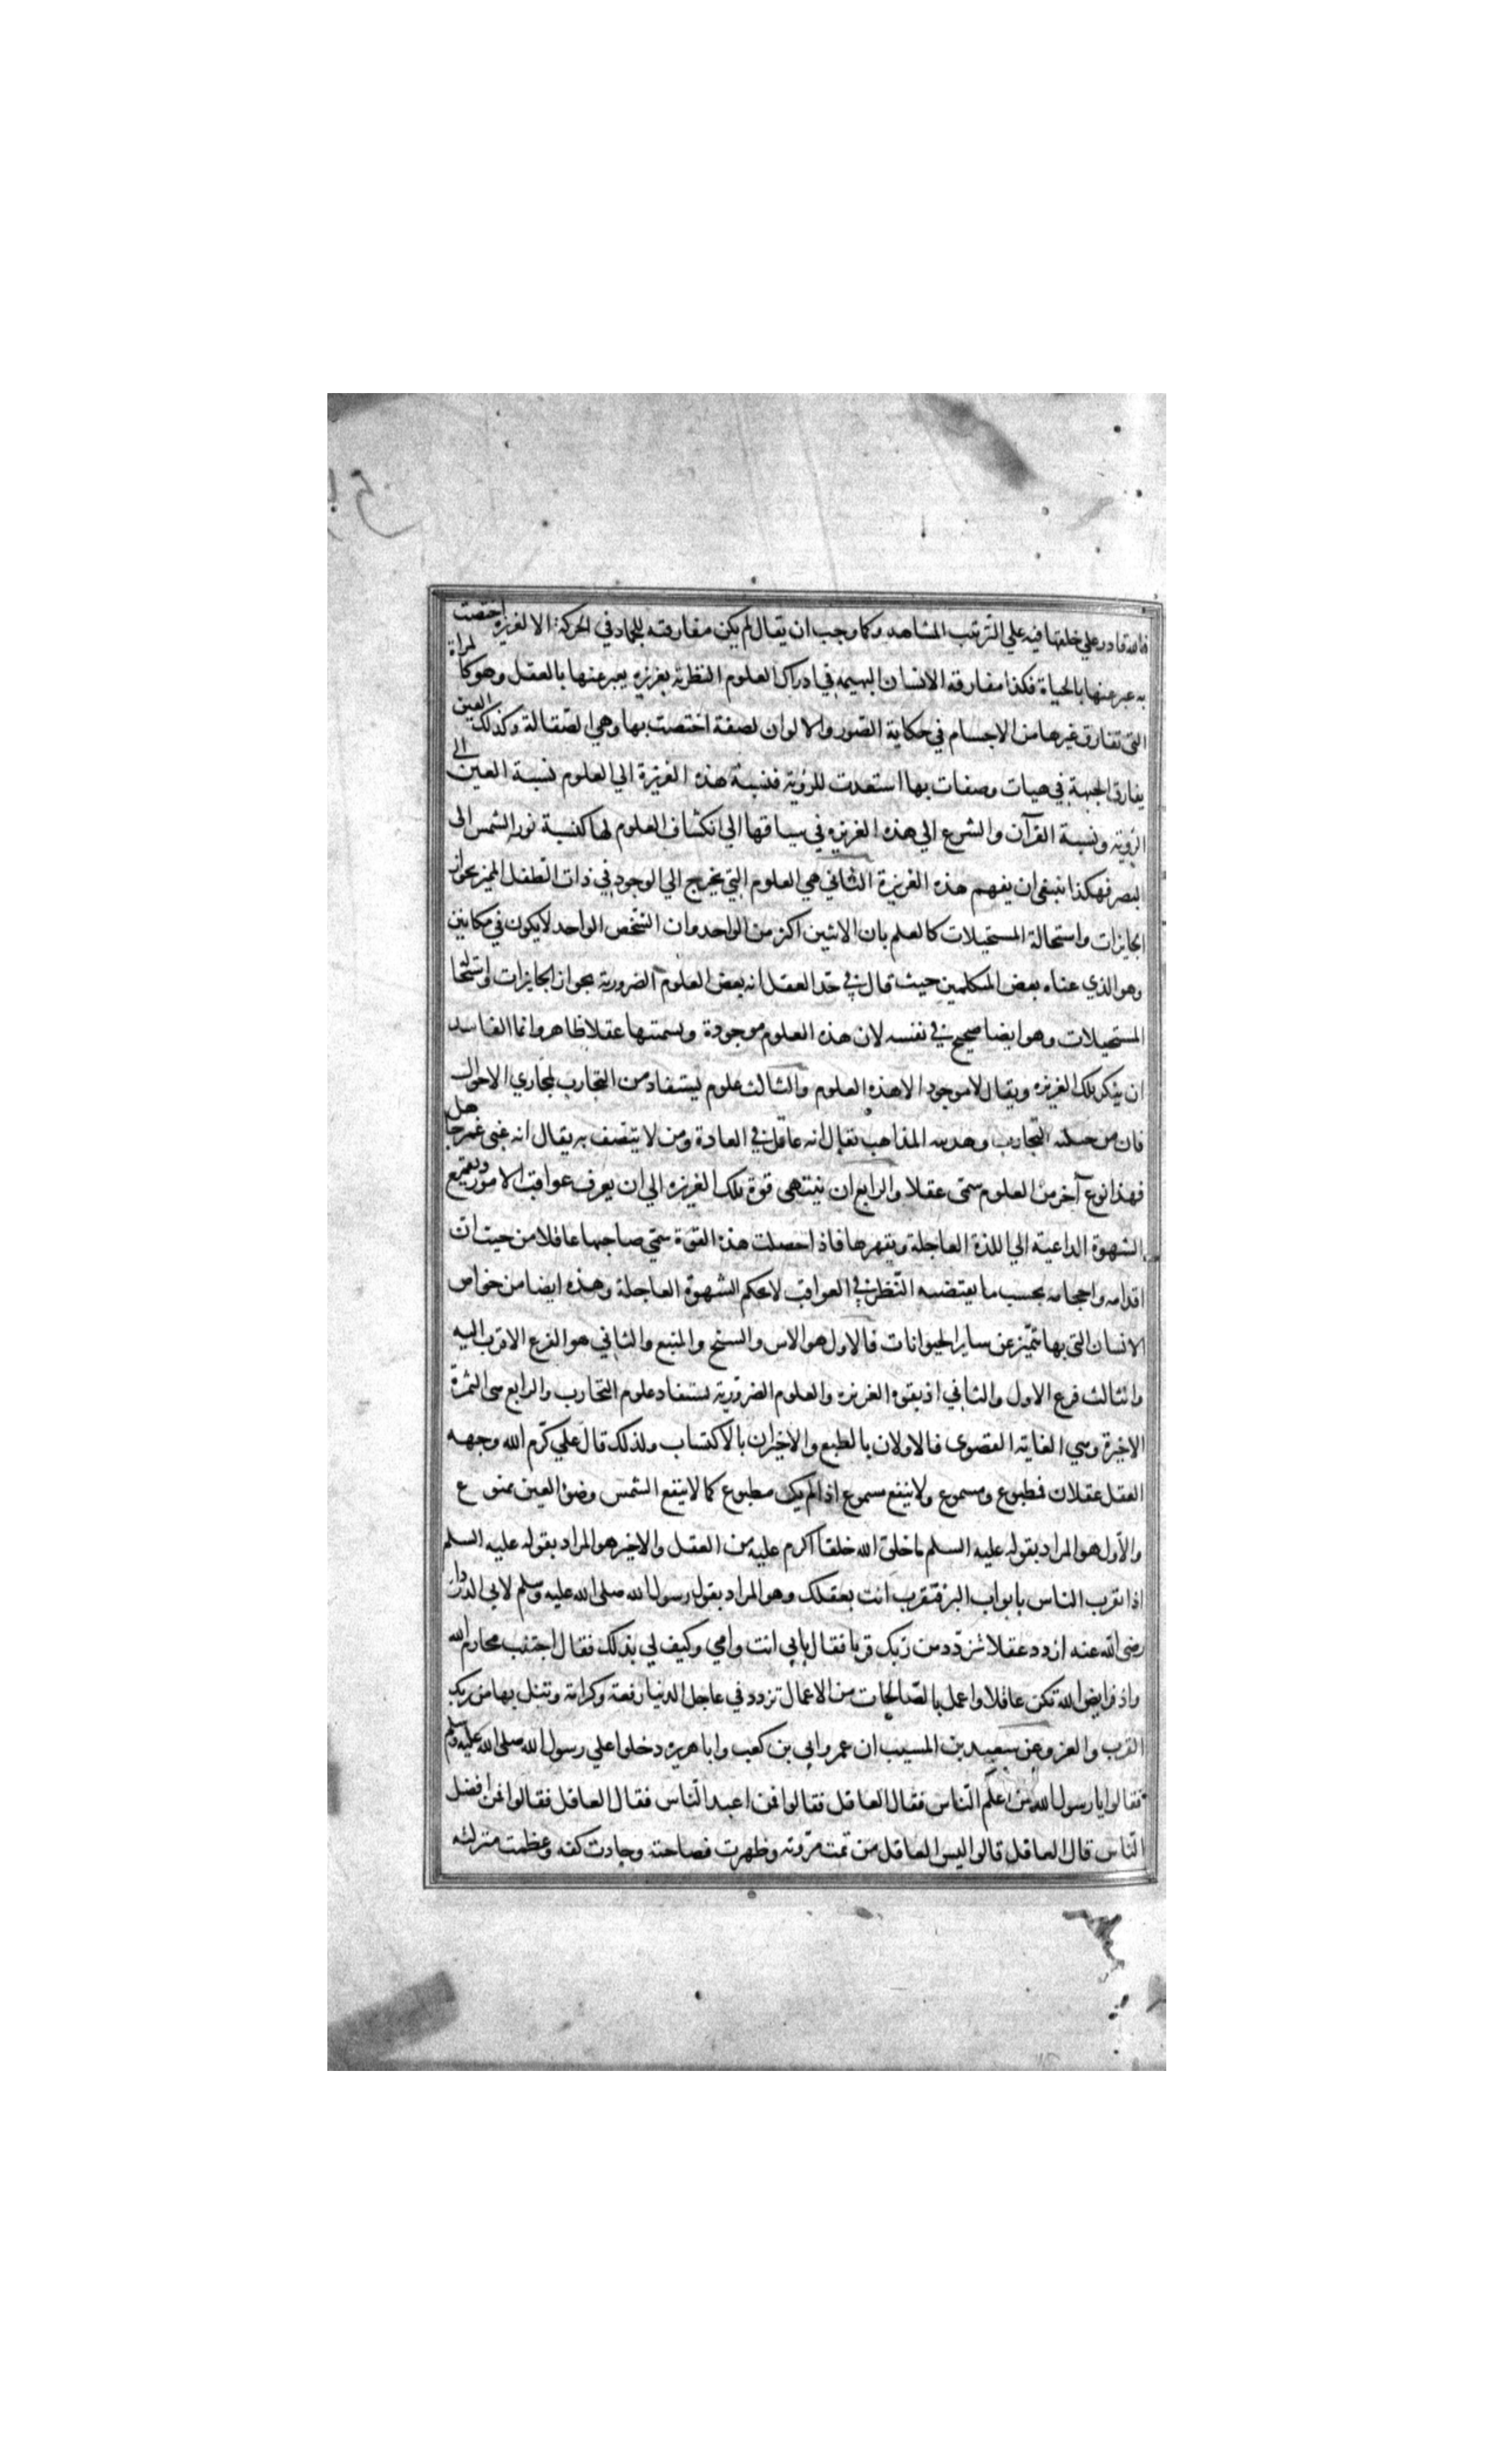 فالله قادر علي خلقها فيه علي الترتيب المشاهد وكما وجب ان يقال لم يكن مفارقته للجماد في الحركة الا لغريزة اختصت
به عبر عنها بالحياة فكذا مفارقة الانسان البهيمة في ادراك العلوم النظرية بغريزة يعبر عنها بالعقل وهو كالمراة
التي تفارق غيرها من الاجسام في حكاية الصور والالوان لصفة اختصت بها وهي الصقالة وكذلك العين
يفارق الجبهة في هيات وصفات بها استعدت للرؤية فنسبة هذه الغريزة الي العلوم نسبة العين الي
الرؤية ونسبة القرآن والشرع الي هذه الغريزة في سياقها الي انكشاف العلوم لها كنسبة نور الشمس الى
لبصر فهكذا ينبغي ان يفهم هذه الغريزة الثاني هي العلوم التي يخرج الي الوجود في ذات الطفل المميز بجواز
الجايزات واستحالة المستحيلات كالعلم بان الاثنين اكثر من الواحد وان الشخص الواحد لا يكون في مكانين
وهو الذي عناه بعض المتكلمين حيث قال في حد العقل انه بعض العلوم الضرورية بجواز الجايزات واستحالة
المستحيلات وهو ايضا صحيح في نفسه لان هذه العلوم موجودة وتسمتها عقلا ظاهر وانما الفاسد
ان ينكر تلك الغريزة ويقال لا موجود الا هذه العلوم والثالث علوم يستفاد من التجارب لمجاري الاحوال
فان من حنكته التجارب وهدبته المذاهب يقال انه عاقل في العادة ومن لا يتصف به يقال انه غبي غمر جاهل
فهذا نوع آخر من العلوم سمي عقلا والرابع ان ينتهي قوة تلك الغريزة الي ان يعرف عواقب الامور ويقمع
الشهوة الداعية الي اللذة العاجلة ويقهرها فاذا حصلت هذه القوة سمي صاحبها عاقلا من حيث ان
اقدامه واحجامه بحسب ما يقتضيه النظر في العواقب لا بحكم الشهوة العاجلة وهذه ايضا من خواص
الانسان التي بها تميز عن ساير الحيوانات فالاول هو الاس والسنخ والمنبع والثاني هو الفرع الاقرب اليه
والثالث فرع الاول والثاني اذ بقوة الغريزة والعلوم الضرورية يستفاد علوم التجارب والرابع هي الثمرة
الاخيرة وهي الغاية القصوى فالاولان بالطبع والاخيران بالاكتساب ولذلك قال علي كرم الله وجهه
العقل عقلان فمطبوع ومسموع ولا ينفع مسموع اذا لم يك مطبوع كما لا ينفع الشمس وضوٴ العين ممنوع
والاول هو المراد بقوله عليه السلم ما خلق الله خلقا اكرم عليه من العقل والاخير هو المراد بقوله عليه السلم
اذا تقرب الناس بابواب البر فتقرب انت بعقلك وهو المراد بقول رسول الله صلى الله عليه وسلم لابي الدردا
رضي الله عنه ازدد عقلا تزدد من ربك قربا فقال بابي انت وامي وكيف لي بذلك فقال اجتنب محارم الله
واد فرايض الله تكن عاقلا واعمل بالصالحات من الاعمال تزدد في عاجل الدنيا رفعة وكرامة وتنل بها من ربك
القرب والعز وعن سعيد بن المسيب ان عمر وابي بن كعب وابا هريره دخلوا علي رسول الله صلى الله عليه وسلم
فقالوا يا رسول الله من اعلم الناس فقال العاقل فقالوا فمن اعبد الناس فقال العاقل فقالوا فمن افضل
الناس قال العاقل قالوا اليس العاقل من تمت مروته وظهرت فصاحته وجادت كفه وعظمت منزلته